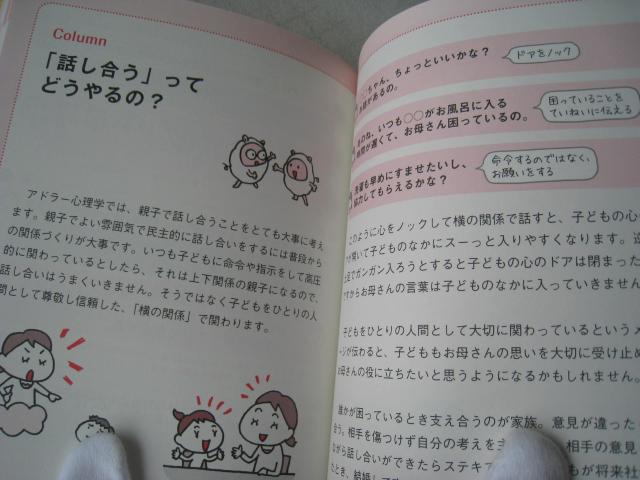 Column
「話し合う」って
どうやるの？
アドラー心理学では、親子で話し合うことをとても大事に考え
ます。親子でよい雰囲気で民主的に話し合いをするには普段から
の関係づくりが大事です。いつも子どもに命令や指示をして高圧
的に関わっているとしたら、それは上下関係の親子になるので、
話し合いはうまくいきません。そうではなく子どもをひとりの人
間として尊敬し信頼した、「横の関係」で関わります。
○ちゃん、ちょっといいかな？
があるの。
ドアをノック
あのね、いつも○○がお風呂に入る
時間が遅くて、お母さん困っているの。
困っていることを
ていねいに伝える
洗濯も早めにすませたいし、
協力してもらえるかな？
命令するのではなく、
お願いをする
このように心をノックして横の関係で話すと、子どもの心
が開いて子どものなかにスーっと入りやすくなります。
でガンガン入ろうとすると子どもの心のドアは閉まった
ですからお母さんの言葉は子どものなかに入っていきません
子どもをひとりの人間として大切に関わっているというメ
ージが伝わると、子どももお母さんの思いを大切に受け止め
お母さんの役に立ちたいと思うようになるかもしれません。
誰かが困っているとき支え合うのが家族。意見が違った
合う。相手を傷つけず自分の考えを主
相手の意見
ながら話し合いができたらステキで
もが将来社
たとき、結婚して